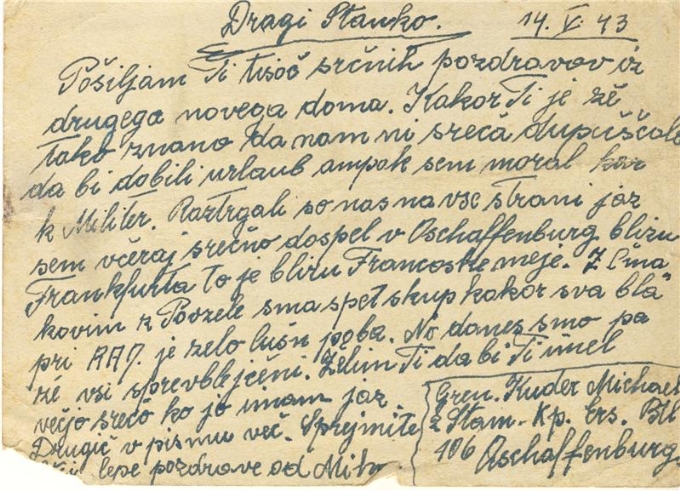 Dragi Stanko. 14. V. 43
Pošiljam Ti tisoč srčnih pozdravov iz
drugega novega doma. Kakor Ti je že
tako znano da nam ni sreča dupuščala
da bi dobili urlaub ampak sem moral kar
k Militer. Raztrgali so nas na vse strani jaz
sem včeraj srečno dospel v Oschaffenburg blizu
Frankfurta to je blizu Francoske meje. Z
kovim z Povzele sma spet skup kakor sva bla
pri RAD. je zelo lušn pąba. No danes smo pa
že vsi sprevblejčeni. Želim Ti da bi Ti imel
večjo srečo ko jo imam jaz
Drugič v pismu več. Sprejmite
lepe pozdrave od Miha.
Gren. Kuder Michael
2 Stam. Kp. Ers. Btl
106 Oschaffenburg